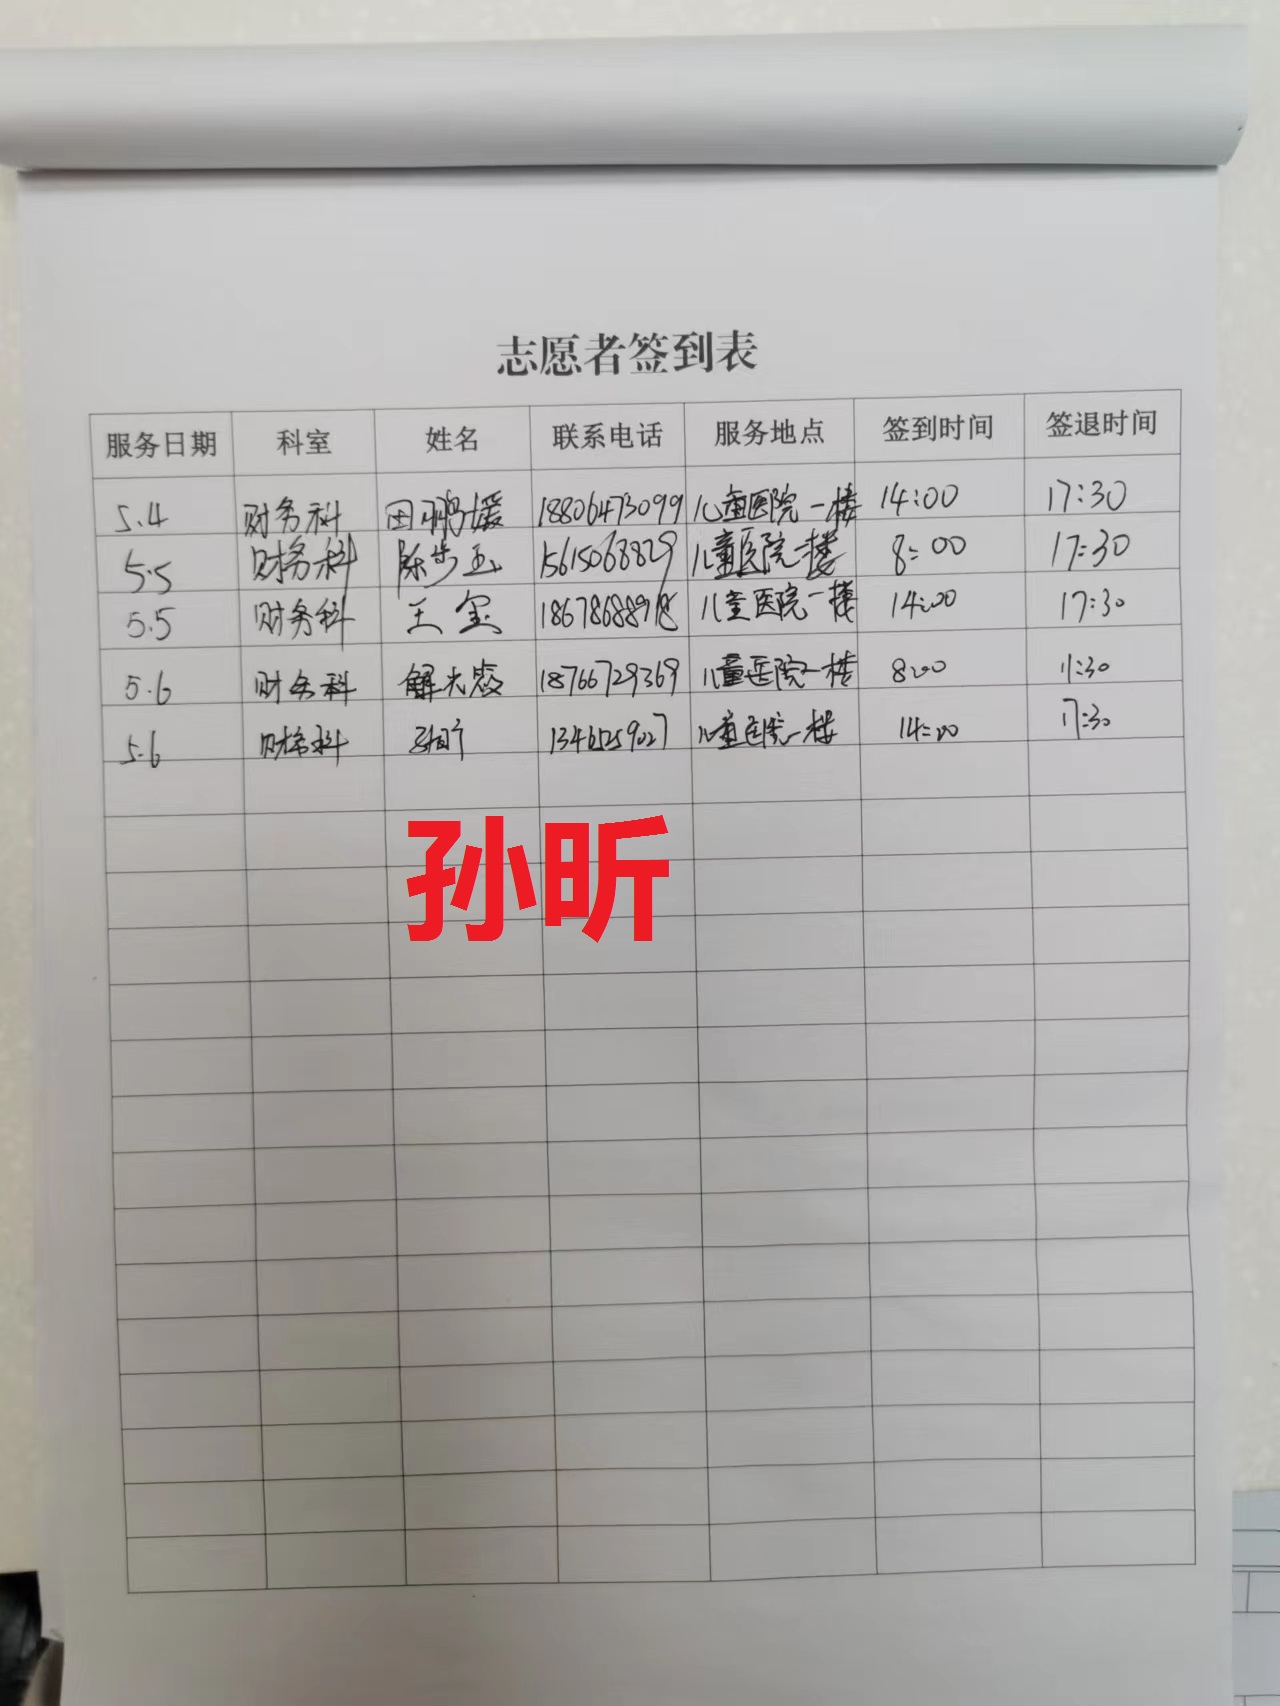 志愿者签到表
服务日期 科室 姓名 联系电话 服务地点 签到时间 签退时间
5.4 财务科 田鹏媛 18806473099 儿童医院一楼 14:00 17:30
5.5 财务科 陈步玉 15615068829 儿童医院一楼 8:00 17:30
5.5 财务科 王玺 儿童医院一楼 14:00 17:30
5.6 财务科 18766729369 儿童医院一楼 8:00 11:30
5.6 财务科 孙昕 儿童医院一楼 14:00 17:30
孙昕